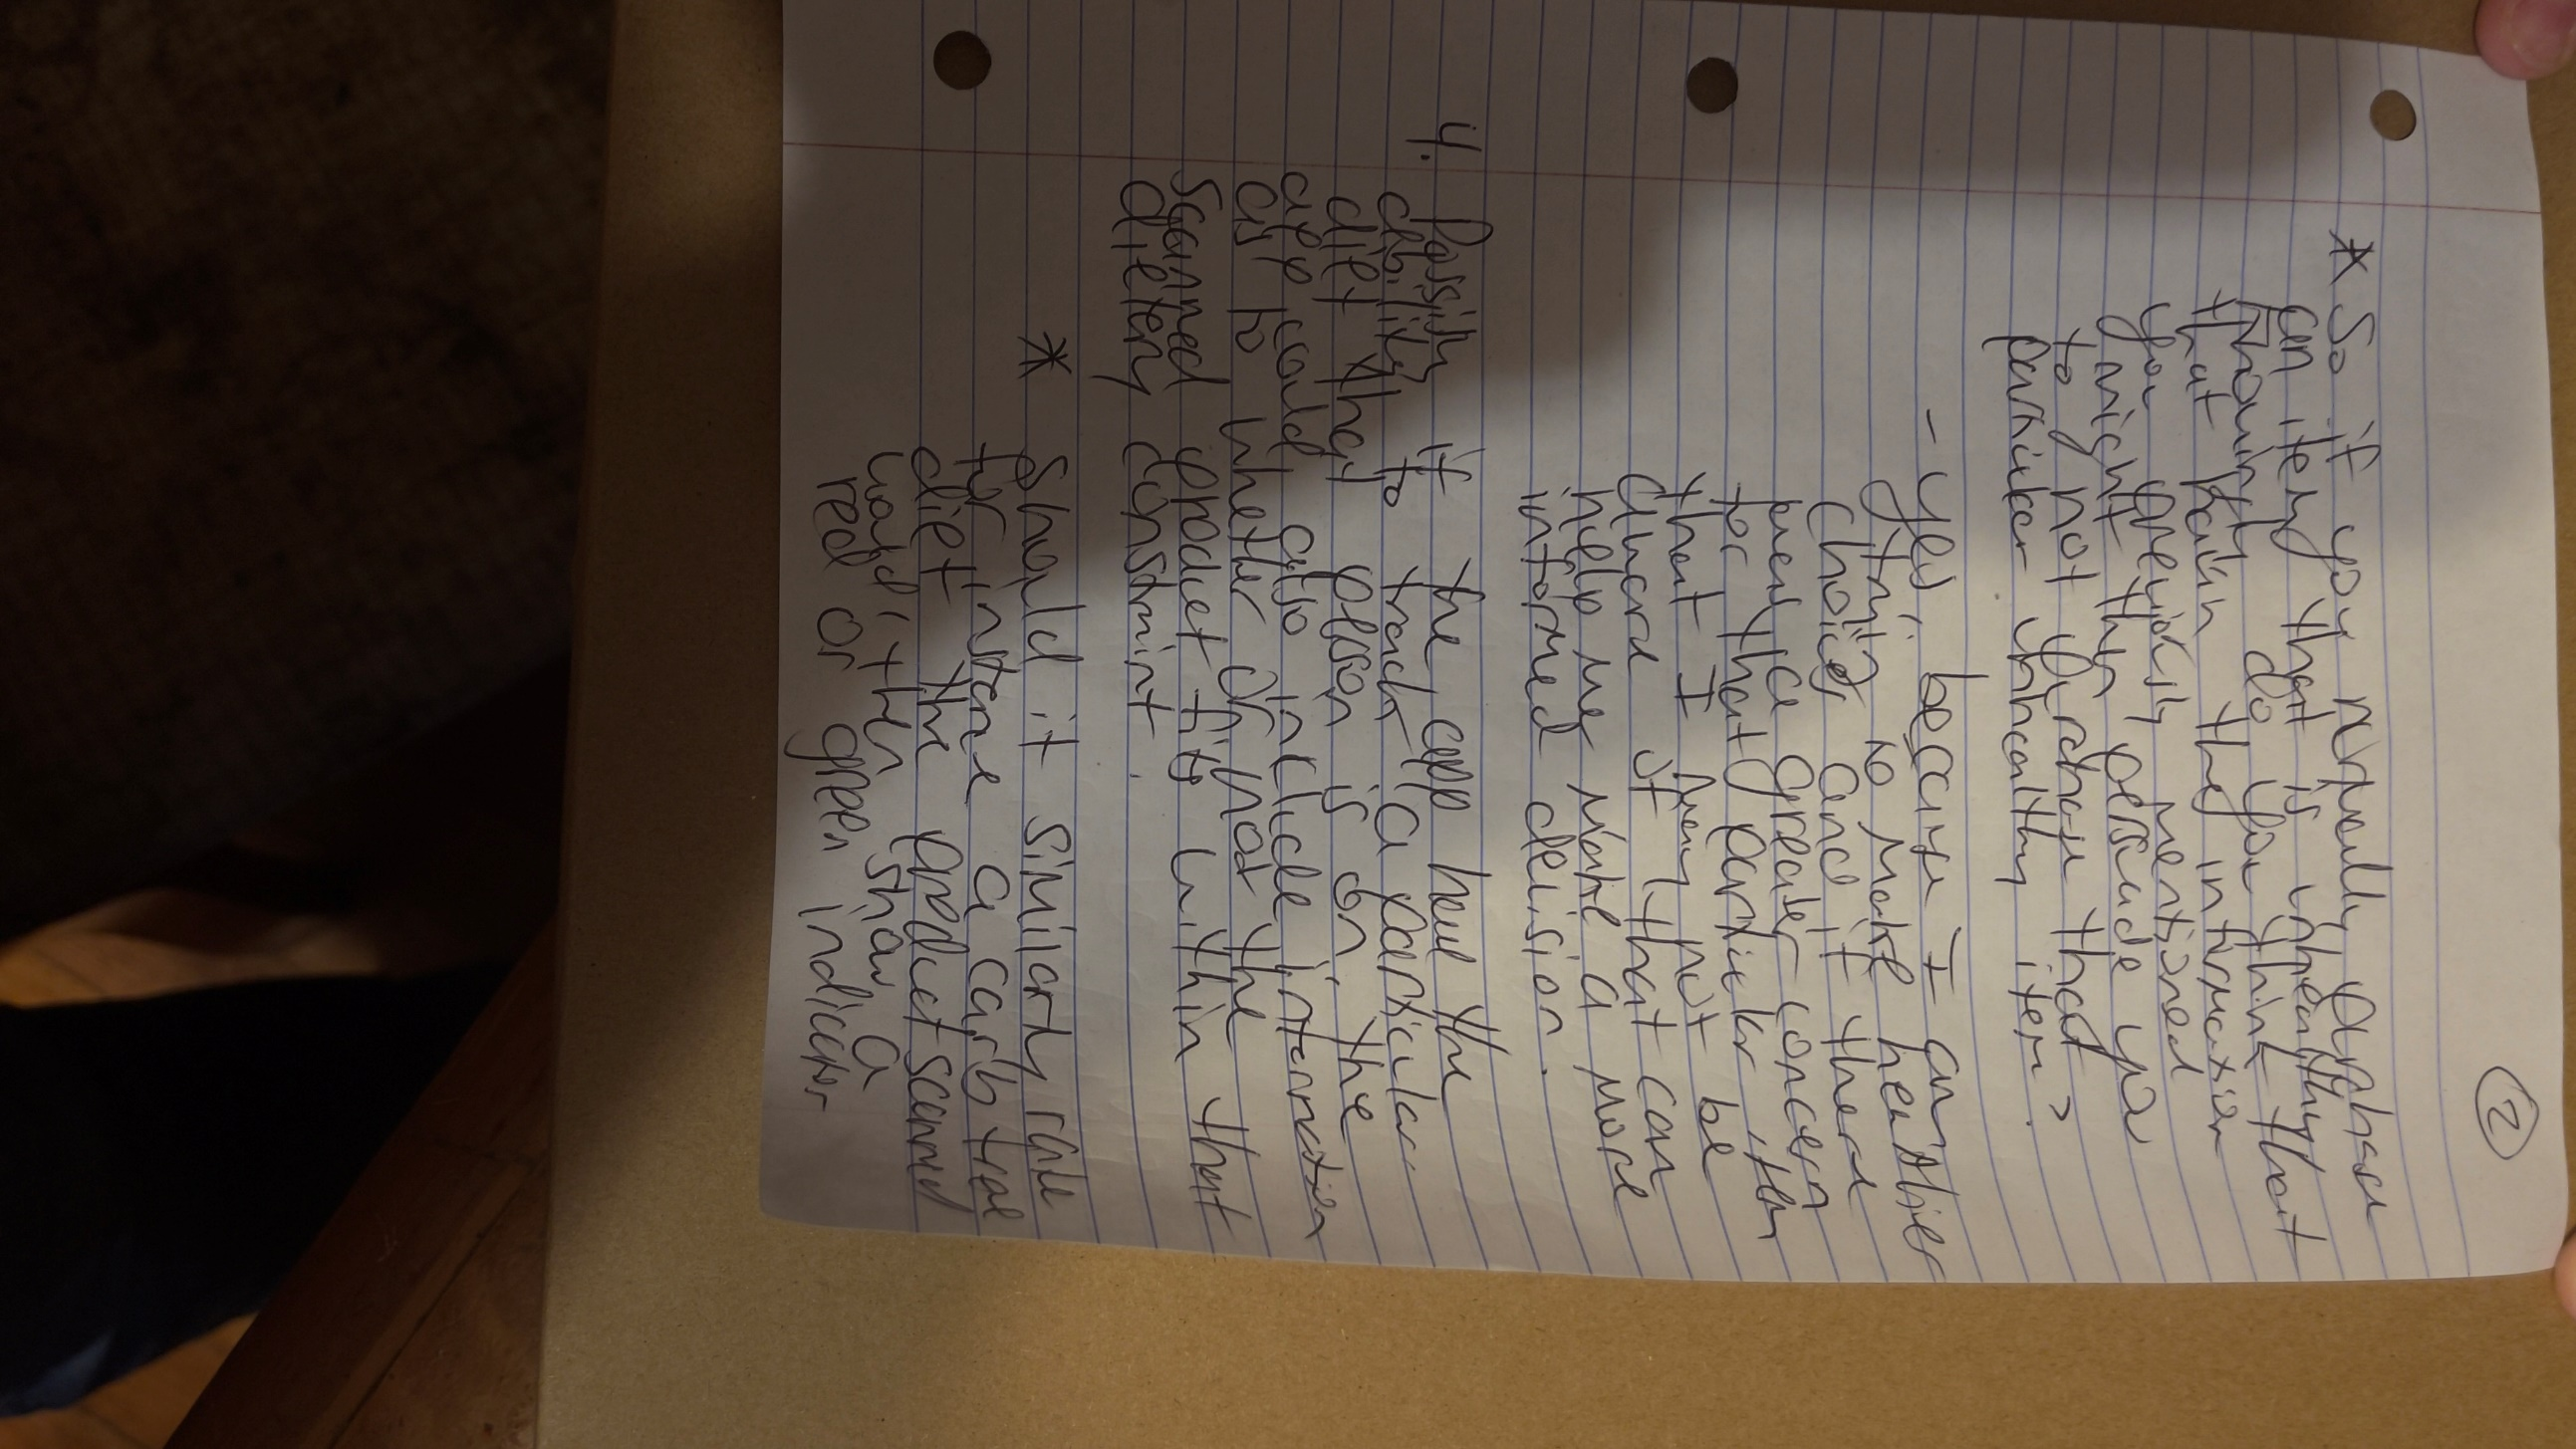 ②
* So if you normally purchase
an item that is unhealthy that
normally do you think that
that pain the information
you previously mentioned
might they persuade you
to not purchase that
particular unhealthy item?
- Yes, because I am
trying to make healthier
choices and if there
were a greater concern
for that particular item
that I may not be
aware of that can
help me make a more
informed decision.
4. Possibly if the app have the
ability to track a particular
diet that person is on, the
app could also include information
as to whether or not the
scanned product fits within that
dietery constraint.
* Should it similarly rate
for instance a carb free
diet the product scanned
would, then show a
red or green indicator